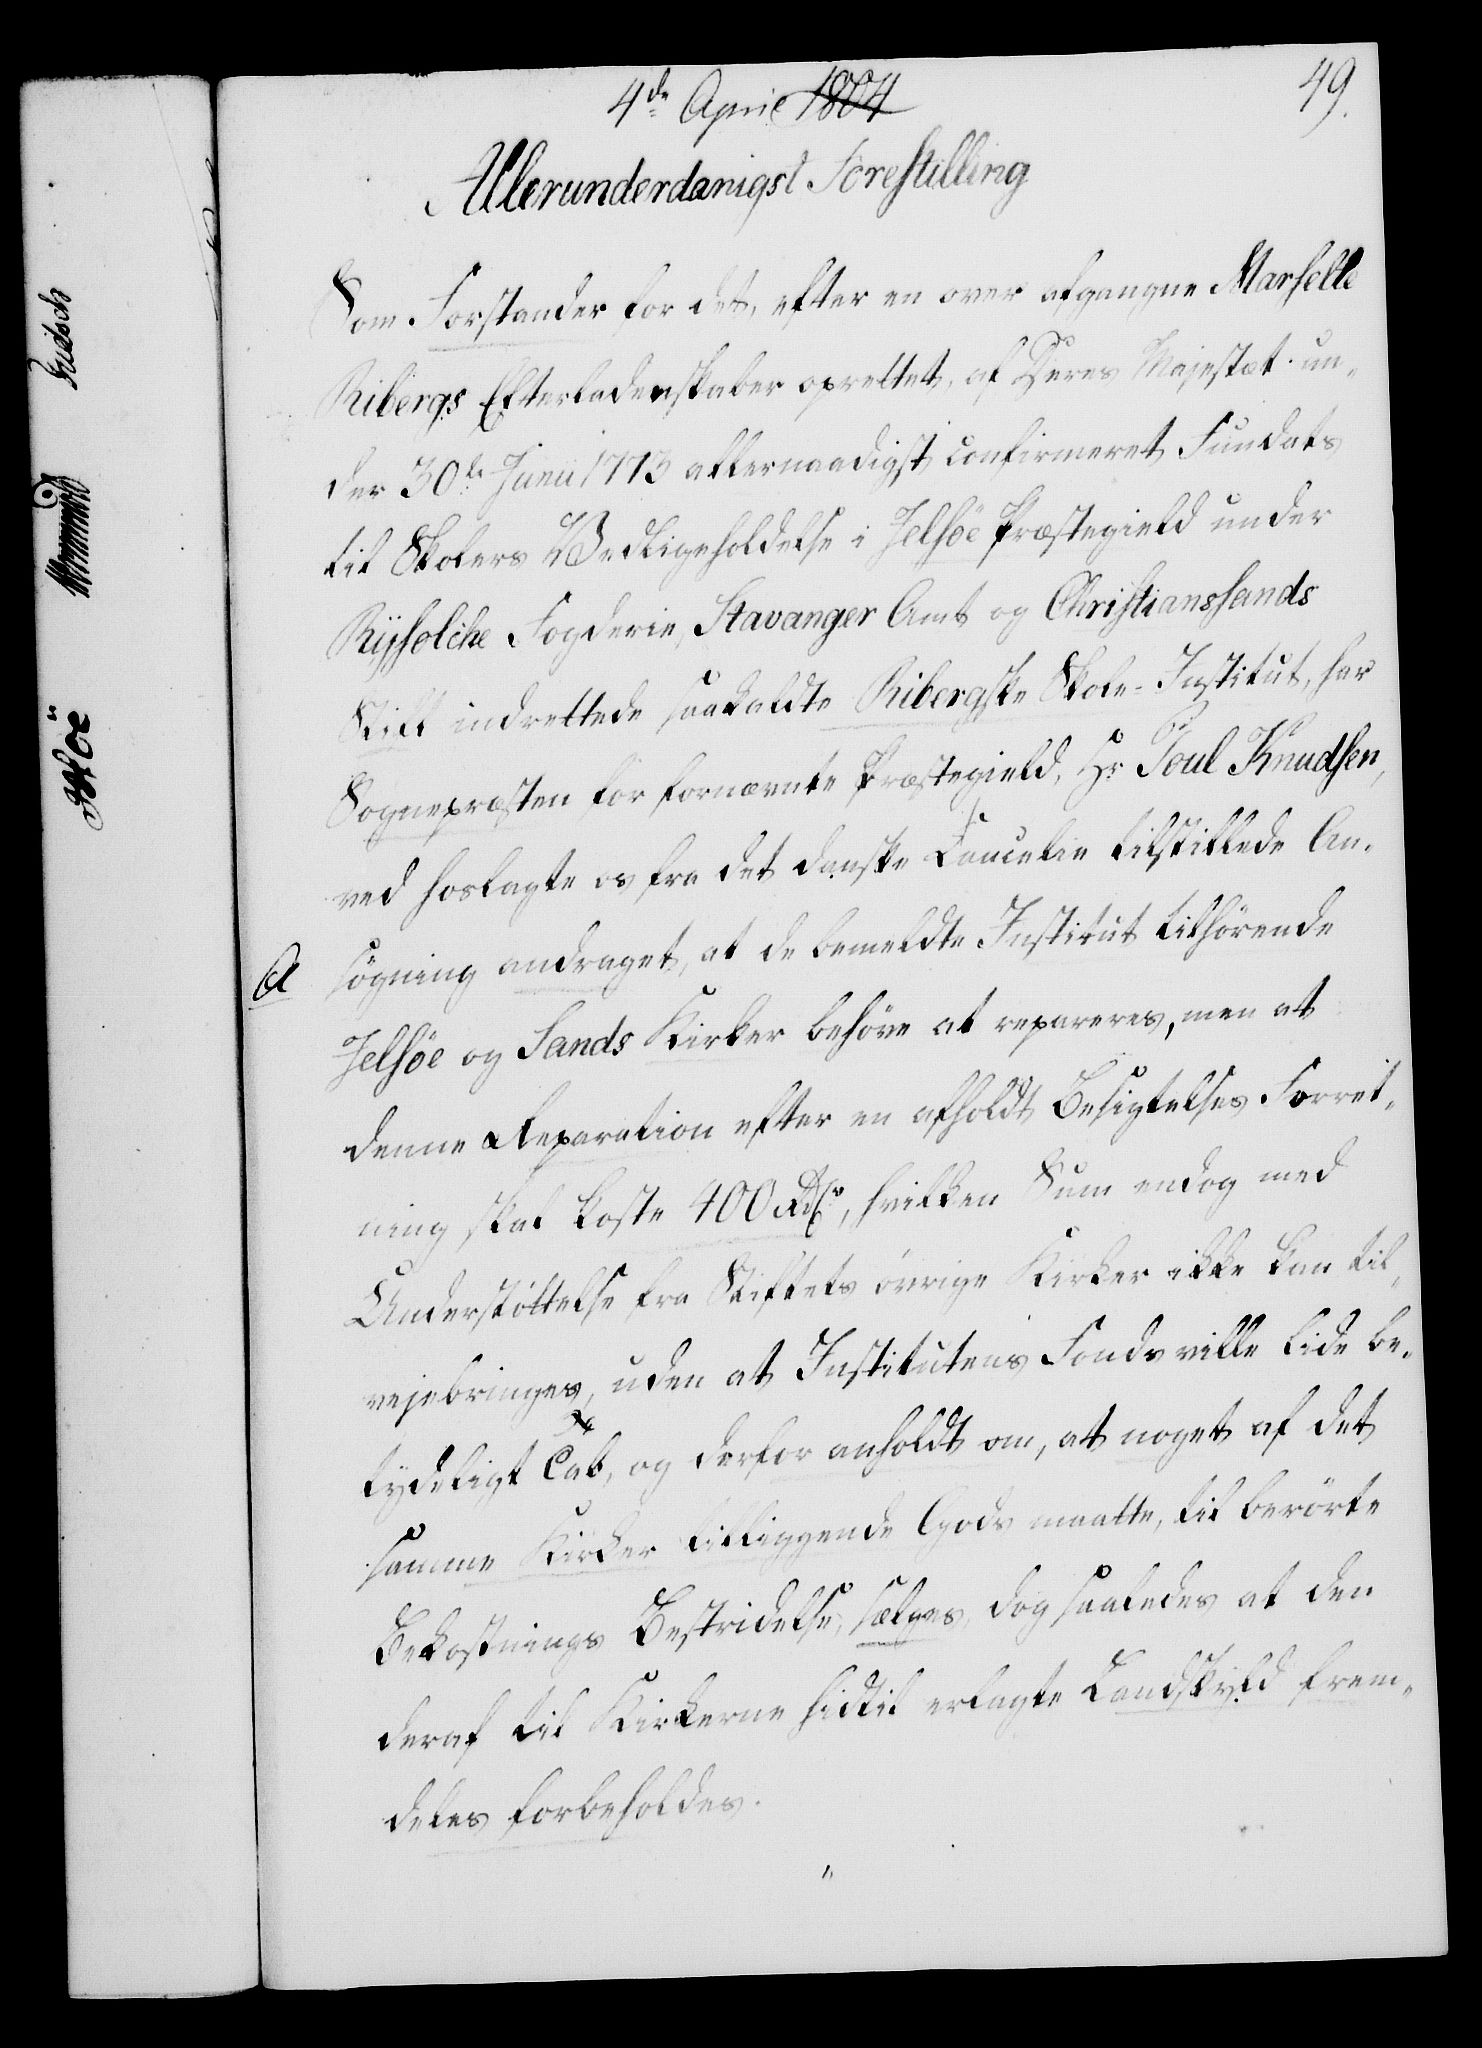 49.
4de April 1804
Allerunderdanigst Forestilling
Som Forstander for det, efter en over afgangne Marselle
Ribergs Efterladenskaber oprettet, af Deres Majestæt un-
der 30de Junii 1773 allernaadigst confirmeret Fundats
til Skolers Vedligeholdelse i Jelsöe Præstegield under
Ryfsølche Fogderie, Stavanger Amt og Christianssands
Stift indrettede saakaldte Ribergske Skole-Institut, har
Sognepræsten for fornævnte Præstegield, Hr Poul Knudsen,
ved hoslagte os fra det danske Cancelie tilstillede An-
A søgning andraget, at de bemeldte Institut tilhörende
Jelsöe og Sands Kirker behöve at repareres, men at
denne Reparation efter en afholdt Besigtelses Forret-
ning skal koste 400 Rdr, hvilken Sum endog med
Understöttelse fra Stiftets övrige Kirker ikke kan til-
vejebringes, uden at Institutens Fonds ville lide be-
tydeligt Tab, og derfor anholdt om, at noget af det
samme Kirker tilliggende Gods maatte, til berörte
Bekostnings Bestridelse, sælges, dog saaledes at den
deraf til Kirkerne hidtil erlagte Landskyld frem-
deles forbeholdes.